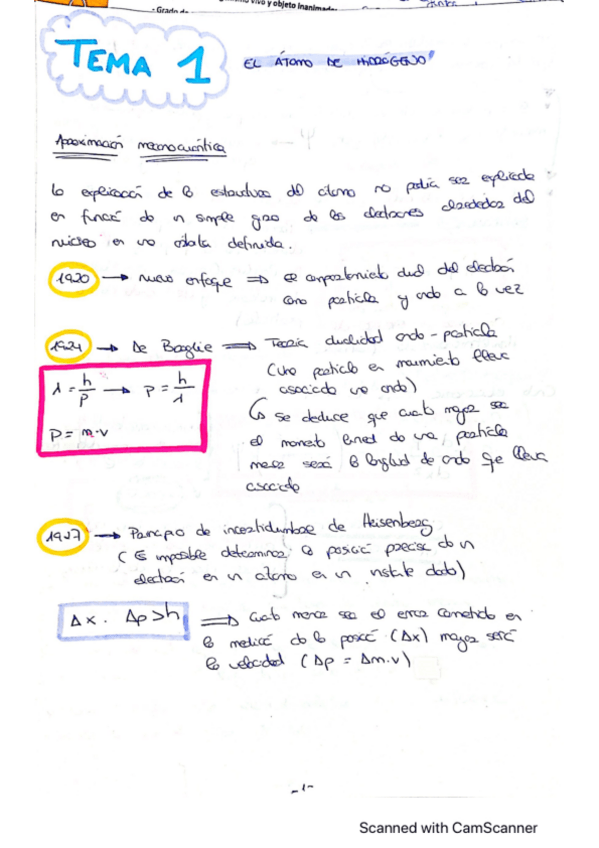 - Grado de
vivo y objeto inanimado
TEMA 1
EL ÁTOMO DE HIDRÓGENO
Aproximación mecanocuántica
La explicación de la estructura del átomo no podía ser explicada
en función de un simple giro de los electrones alrededor del
núcleo en una órbita definida.
1920 → nuevo enfoque ⇒ el comportamiento dual del electrón
como partícula y onda a la vez
1924 → De Broglie ⇒ Teoría dualidad onda-partícula
(una partícula en movimiento lleva
asociado una onda)
λ = h/p → p = h/λ
p = m·v
↳ se deduce que cuanto mayor sea
el momento lineal de una partícula
menor será la longitud de onda que lleva
asociada
1927 → Principio de incertidumbre de Heisenberg
(Es imposible determinar la posición precisa de un
electrón en un átomo en un instante dado)
Δx. Δp>h ⇒ Cuanto menor sea el error cometido en
la medida de la posición (Δx) mayor será
la velocidad (Δp = Δm.v)
-1-
Scanned with CamScanner